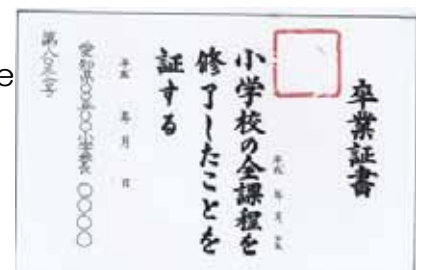 卒業証書
平成 年 月 日生
小学校の全課程を
修了したことを
証する
平成 年 月 日
愛知県○○市○○小学校長 ○○○○
e